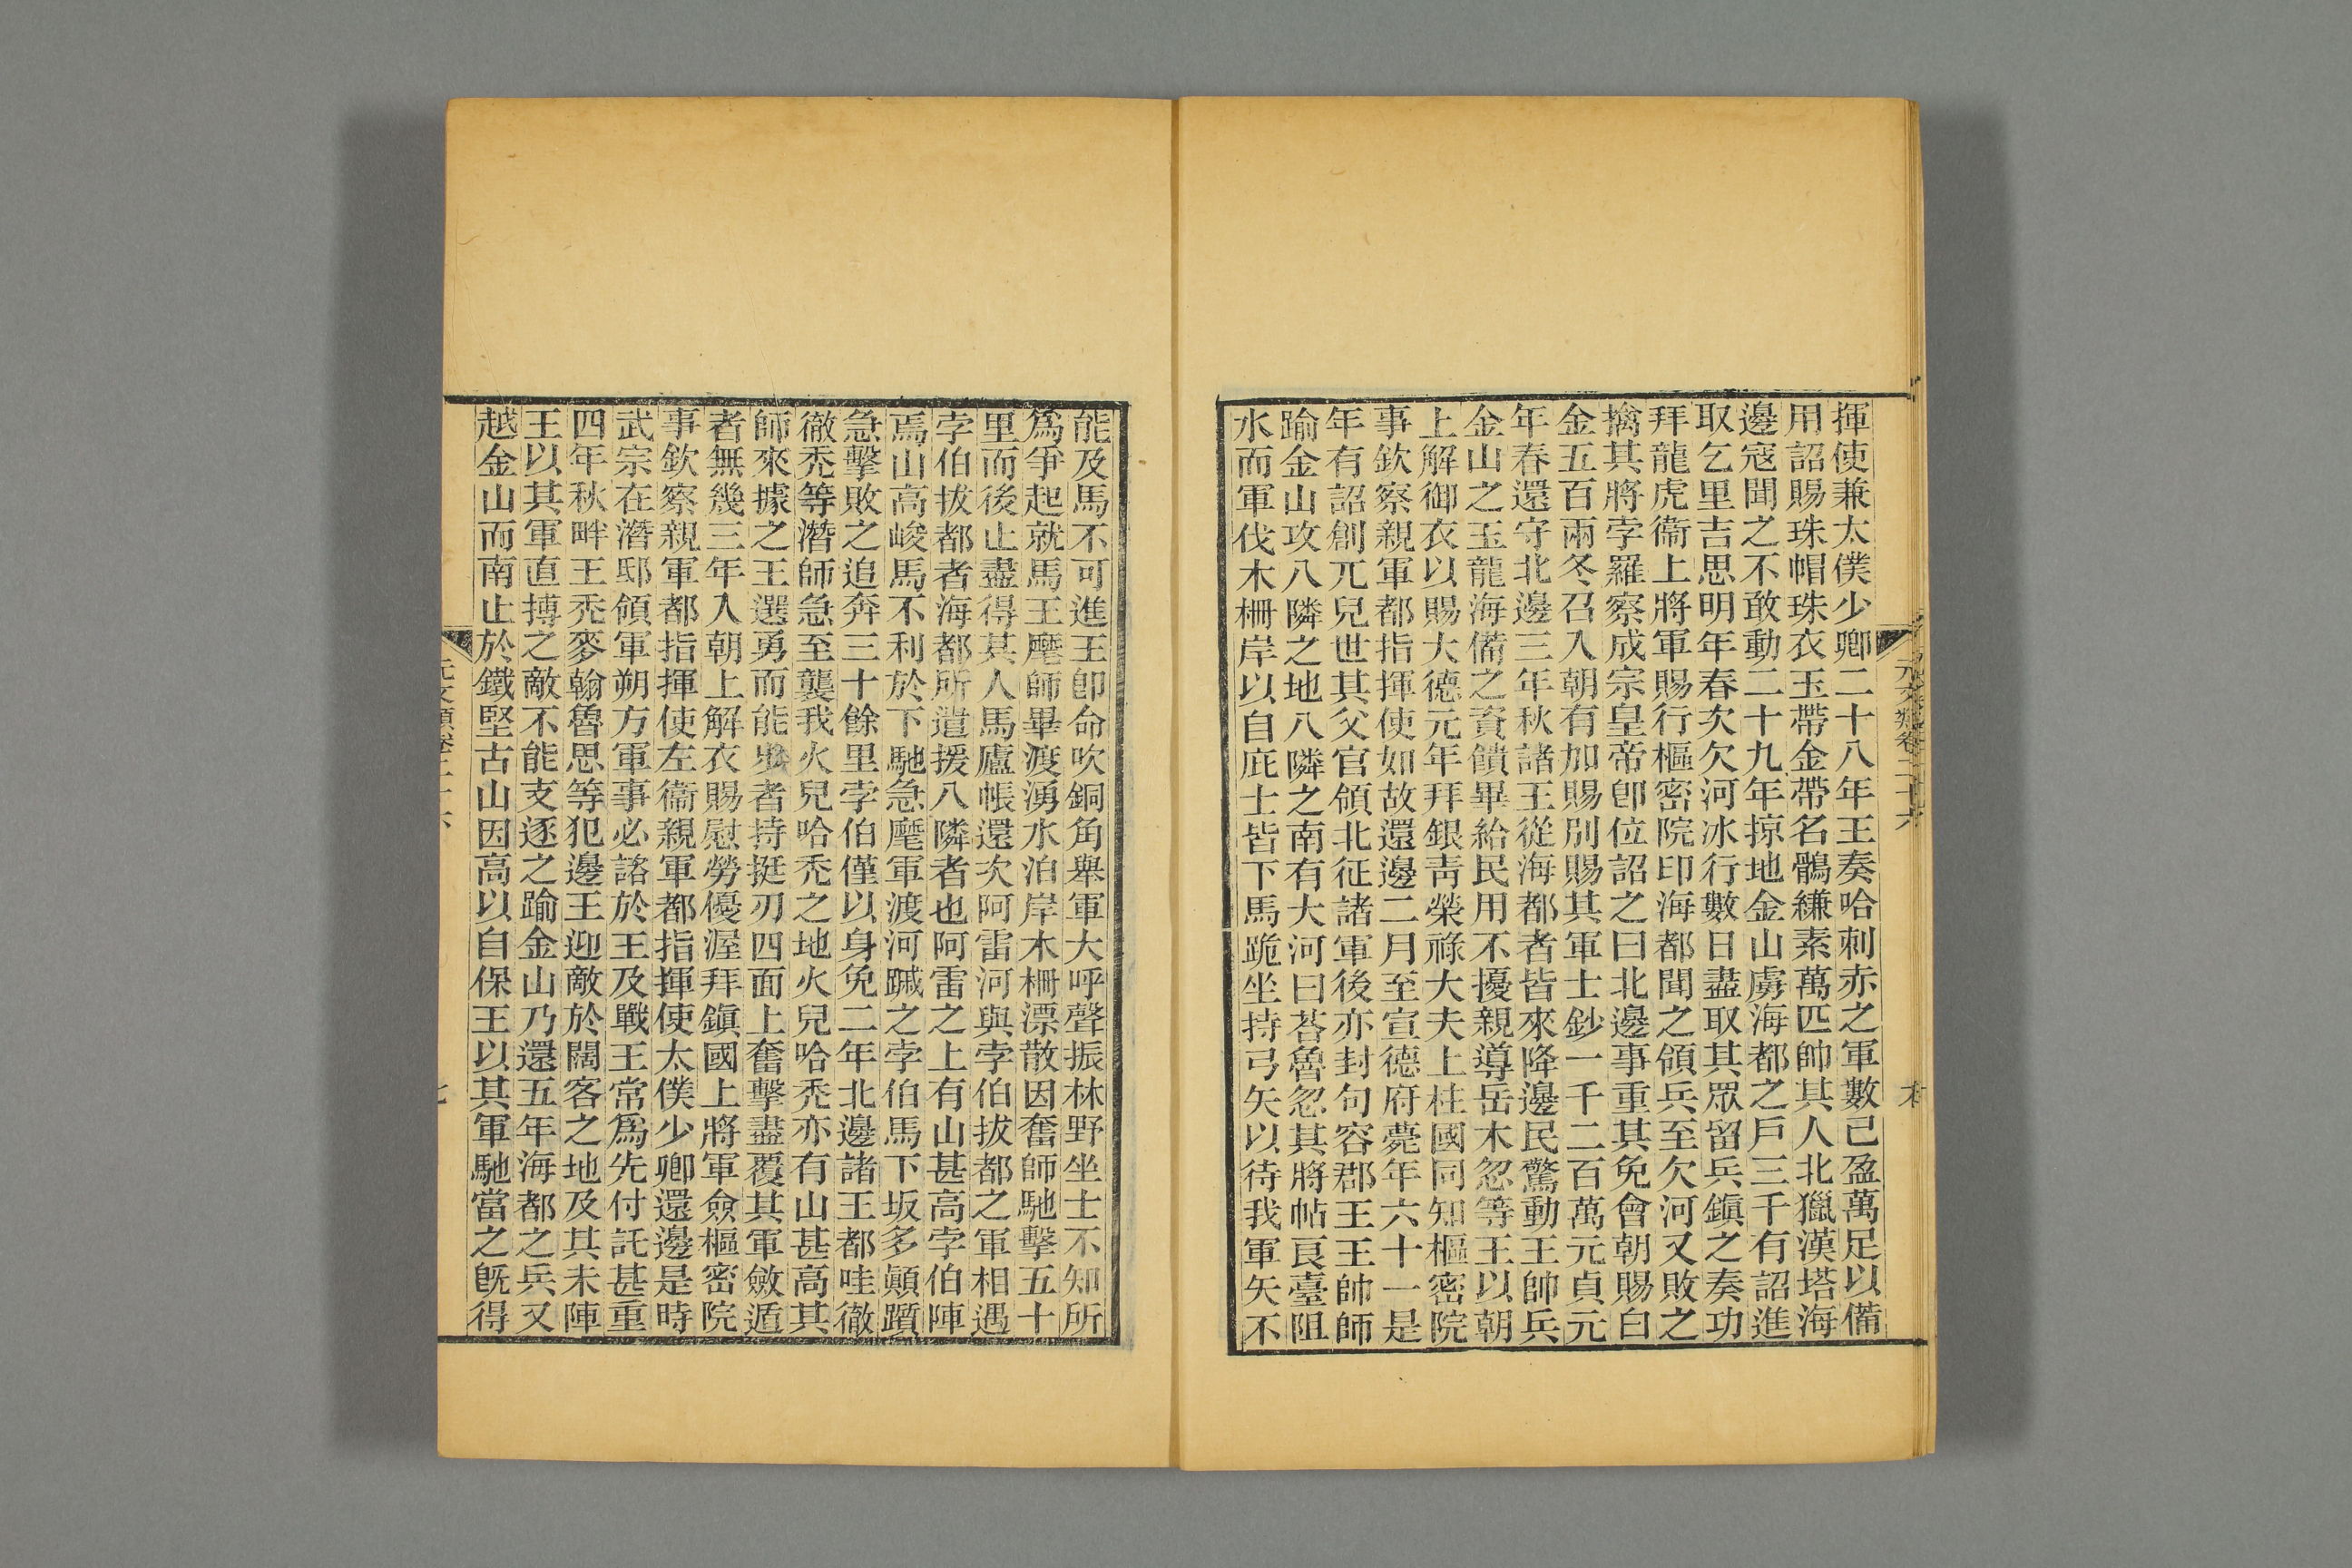 揮使兼太僕少卿二十八年王奏哈刺赤之軍數已盈萬足以備
用詔賜珠帽珠衣玉帶金帶名鶻縑素萬匹帥其人北獵漢塔海
邊寇聞之不敢動二十九年掠地金山虜海都之戶三千有詔進
取乞里吉思明年春次欠河冰行數日盡取其眾留兵鎮之奏功
拜龍虎衞上將軍賜行樞密院印海都聞之領兵至欠河又敗之
擒其將孛羅察成宗皇帝卽位詔之曰北邊事重其免會朝賜白
金五百兩冬召入朝有加賜別賜其軍士鈔一千二百萬元貞元
年春還守北邊三年秋諸王從海都者皆來降邊民驚動王帥兵
金山之玉龍海備之資饋畢給民用不擾親導岳木忽等王以朝
上解御衣以賜大德元年拜銀青榮祿大夫上柱國同知樞密院
事欽察親軍都指揮使如故還邊二月至宣德府薨年六十一是
年有詔創兀兒世其父官領北征諸軍後亦封句容郡王王帥師
踰金山攻八隣之地八隣之南有大河曰荅魯忽其將帖良臺阻
水而軍伐木柵岸以自庇士皆下馬跪坐持弓矢以待我軍矢不
元文類卷三十六
六
能及馬不可進王卽命吹銅角舉軍大呼聲振林野坐士不知所
爲爭起就馬王麾師畢渡湧水泊岸木柵漂散因奮師馳擊五十
里而後止盡得其人馬廬帳還次阿雷河與孛伯拔都之軍相遇
孛伯拔都者海都所遣援八隣者也阿雷之上有山甚高孛伯陣
焉山高峻馬不利於下馳急麾軍渡河蹴之孛伯馬下坂多顛躓
急擊敗之追奔三十餘里孛伯僅以身免二年北邊諸王都哇徹
徹禿等潛師急至襲我火兒哈禿之地火兒哈禿亦有山甚高其
師來據之王選勇而能步者持挺刃四面上奮擊盡覆其軍斂遁
者無幾三年入朝上解衣賜慰勞優渥拜鎮國上將軍僉樞密院
事欽察親軍都指揮使左衞親軍都指揮使太僕少卿還邊是時
武宗在潛邸領軍朔方軍事必諮於王及戰王常爲先付託甚重
四年秋畔王禿麥斡魯思等犯邊王迎敵於闊客之地及其未陣
王以其軍直搏之敵不能支逐之踰金山乃還五年海都之兵又
越金山而南止於鐵堅古山因高以自保王以其軍馳當之旣得
元文類卷三十六
七